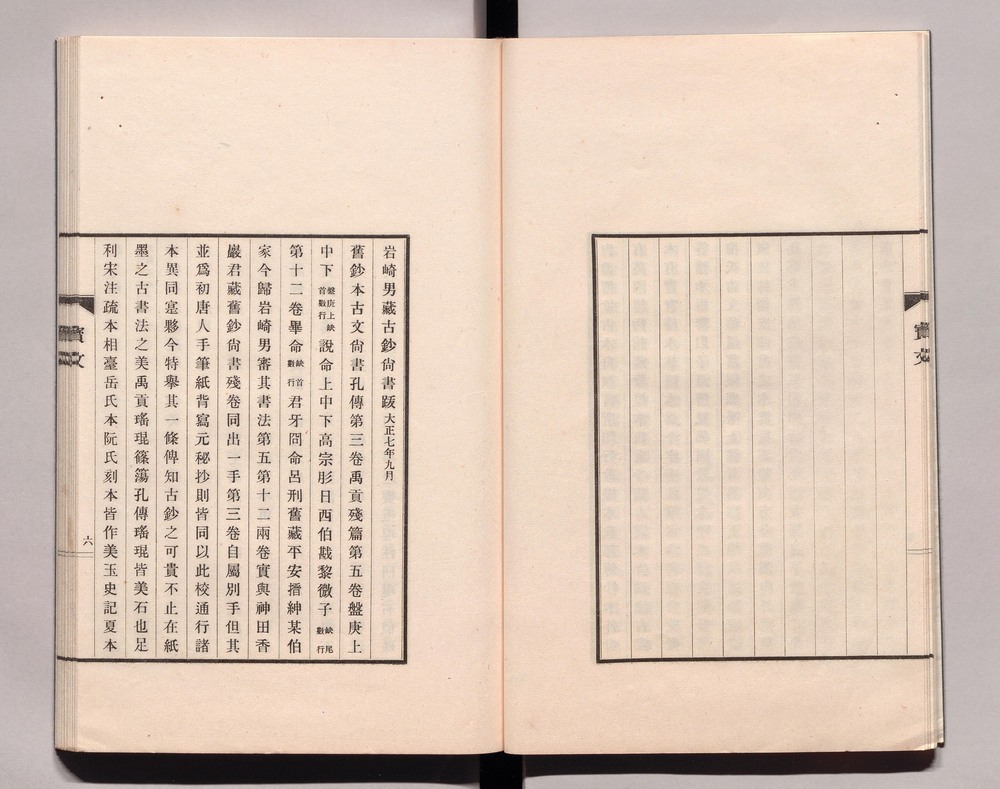 寶文
岩崎男藏古鈔尙書䟦大正七年九月
舊鈔本古文尙書孔傳第三卷禹貢殘篇第五卷盤庚上
中下盤庚上缺首數行說命上中下高宗肜日西伯戡黎微子缺尾數行
第十二卷畢命缺首數行君牙冏命呂刑舊藏平安搢紳某伯
家今歸岩崎男審其書法第五第十二兩卷實與神田香
巖君藏舊鈔尙書殘卷同出一手第三卷自屬別手但其
並爲初唐人手筆紙背寫元秘抄則皆同以此校通行諸
本異同寔夥今特舉其一條俾知古鈔之可貴不止在紙
墨之古書法之美禹貢瑤琨篠簜孔傳瑤琨皆美石也足
利宋注疏本相臺岳氏本阮氏刻本皆作美玉史記夏本
寶文
六